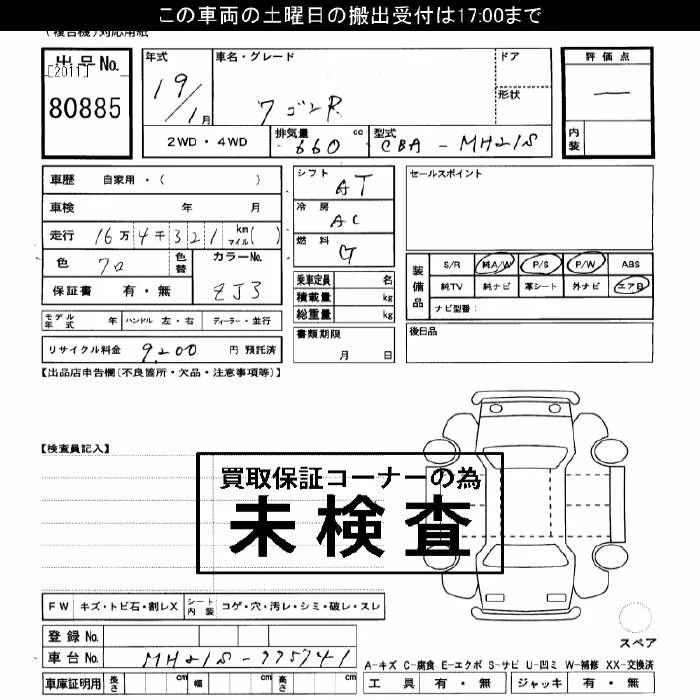 この車両の土曜日の搬出受付は17:00まで
(複合機)対応用紙
出品No.
[2011]
80885
年式
19/1月
車名・グレード
ワゴンR
ドア
形状
評価点
—
内装
2WD・4WD
排気量 660 cc
型式 CBA-MH21S
車歴 自家用・( )
車検 年 月
走行 16万4千321 km マイル( )
色 クロ
色替
カラーNo. ZJ3
保証書 有・無
モデル年式 年 ハンドル 左・右 ディーラー・並行
リサイクル料金 9200 円 預託済
シフト AT
冷房 AC
燃料 G
乗車定員 名
積載量 kg
総重量 kg
書類期限
月 日
セールスポイント
装備品
S/R 純A/W P/S P/W ABS
純TV 純ナビ 革シート 外ナビ エアB
ナビ型番:
後日品
【出品店申告欄(不良箇所・欠品・注意事項等)】
【検査員記入】
買取保証コーナーの為
未検査
FW キズ・トビ石・割レX シート内装 コゲ・穴・汚レ・シミ・破レ・スレ
登録No.
車台No. MH21S-775741
車庫証明用 長さ cm 幅 cm 高さ cm
スペア
A-キズ C-腐食 E-エクボ S-サビ U-凹ミ W-補修 XX-交換済
工具 有・無 ジャッキ 有・無